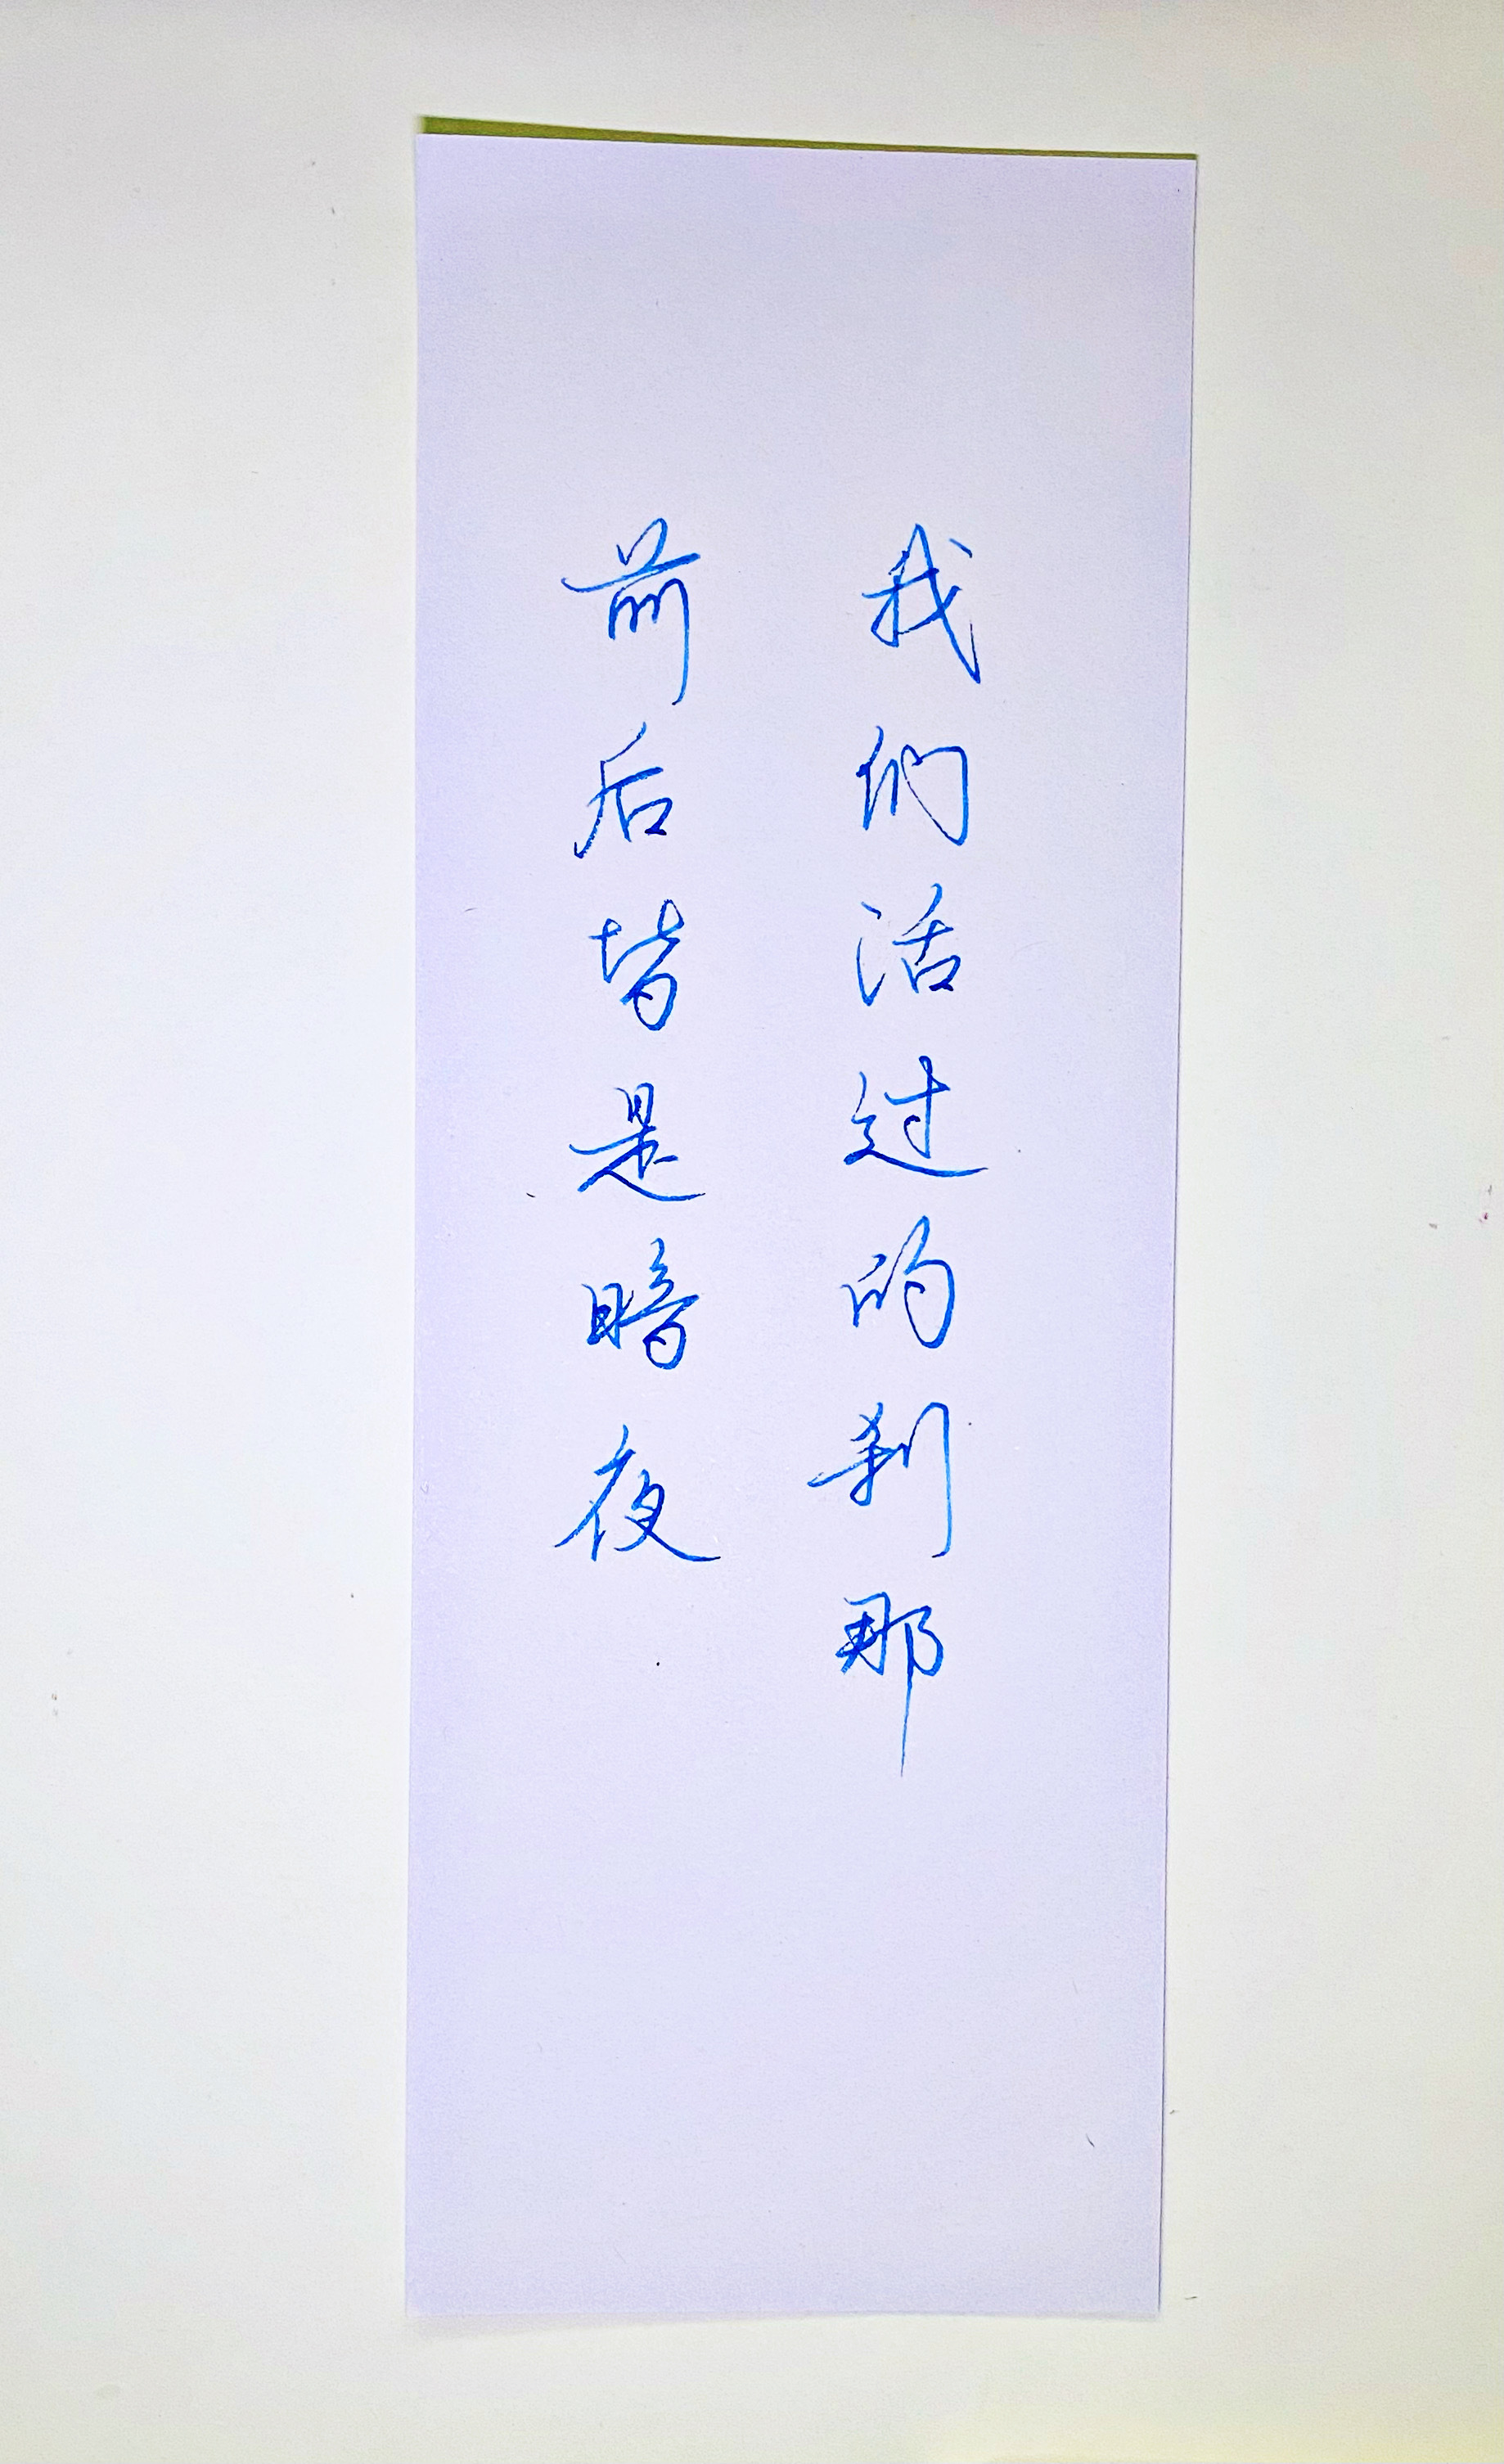 我们活过的刹那
前后皆是暗夜